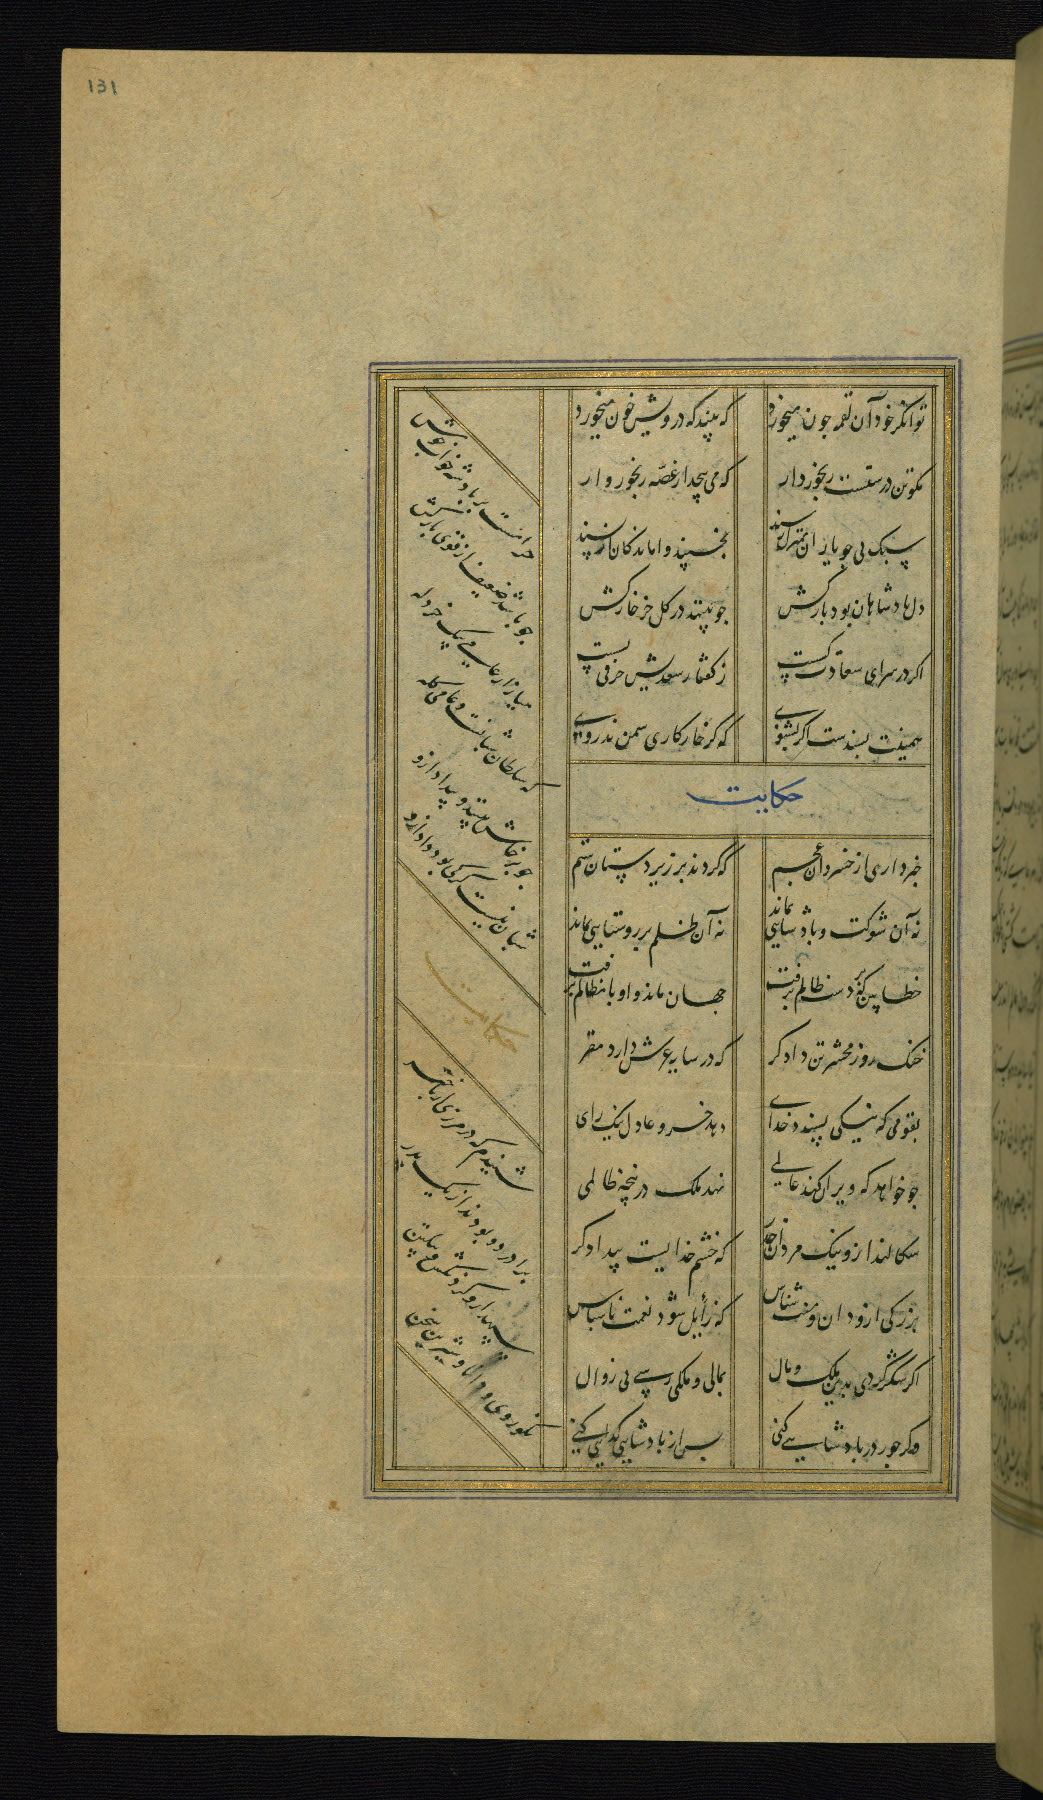 131
توانکر خود آن لقمه جون میخورد
که بیند که درویش خون میخورد
مکو تن درستست رنجوردار
که می پیچد از غصه رنجوروار
سبک پی جو یاران بمنزل رسند
نخسپند واماندکان از پسند
دل پادشاهان بود بارکش
جو بینند در کل خر خارکش
اکر در سرای سعادت کسست
ز کفتار سعدیش حرفی بسست
همینت بسندست اکر بشنوی
که کر خار کاری سمن ندروی
حکایت
خبر داری از خسروان عجم
که کردند بر زیردستان ستم
نه آن شوکت و پادشاهی بماند
نه آن ظلم بر روستایی بماند
خطا بین که بر دست ظالم برفت
جهان ماند و او با مظالم برفت
خنک روز محشر تن دادکر
که در سایه عرش دارد مقر
بقومی که نیکی پسندد خدای
دهد خسرو عادل نیک رای
جو خواهد که ویران کند عالمی
نهد ملک در پنجه ظالمی
سکالند ازو نیک مردان حذر
که خشم خدایست بیدادکر
بزرکی ازو دان و منت شناس
که زایل شود نعمت ناسپاس
اکر شکر کردی بدین ملک و مال
بمالی و ملکی رسی بی زوال
وکر جور در پادشاهی کنی
پس از پادشاهی کدایی کنی
حرامست بر پادشه خواب خوش
جو باشد ضعیف از قوی بارکش
میازار عامی بیک خردله
که سلطان شبانست و عامی کله
جو پرخاش بینند و بیداد ازو
شبان نیست کرکست فریاد ازو
حکایت
شنیدم که در مرزی از باختر
برادر دو بودند از یک پدر
سپهدار و کردنکش و پیلتن
نکوروی و دانا و شیرین سخن